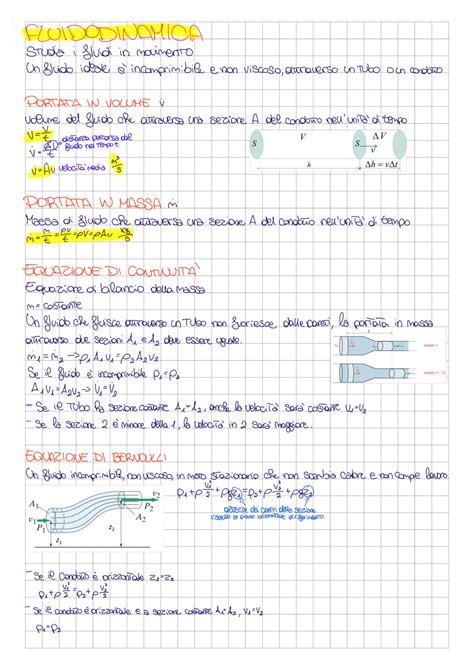 FLUIDODINAMICA
Studia i fluidi in movimento
Un fluido ideale è incomprimibile e non viscoso, attraverso un tubo o un condotto
PORTATA IN VOLUME V̇
Volume del fluido che attraversa una sezione A del condotto nell'unità di tempo
V̇ = V/t
distanza percorsa dal fluido nel tempo t
V̇ = Av velocità media m³/s
S V S ΔV
v
h Δh = vΔt
PORTATA IN MASSA ṁ
Massa di fluido che attraversa una sezione A del condotto nell'unità di tempo
ṁ = m/t = ρV/t = ρV̇ = ρAv kg/s
EQUAZIONE DI CONTINUITÀ
Equazione di bilancio della massa
m = costante
Un fluido che fluisce attraverso un tubo non fuoriesce dalle pareti, la portata in massa
attraverso due sezioni A₁ e A₂ deve essere uguale.
ṁ₁ = ṁ₂ → ρ₁A₁v₁ = ρ₂A₂v₂
Se il fluido è incomprimibile ρ₁ = ρ₂
A₁v₁ = A₂v₂ → V̇₁ = V̇₂
- Se il tubo ha sezione costante A₁ = A₂, anche la velocità sarà costante v₁ = v₂
- Se la sezione 2 è minore della 1, la velocità in 2 sarà maggiore.
EQUAZIONE DI BERNOULLI
Un fluido incomprimibile, non viscoso, in moto stazionario che non scambia calore e non compie lavoro.
p₁ + ρ v₁²/2 + ρgz₁ = p₂ + ρ v₂²/2 + ρgz₂
altezze dei centri della sezione
rispetto al piano orizzontale di riferimento
A₁ v₁ P₁ z₁ v₂ P₂ A₂ z₂
- Se il condotto è orizzontale z₁ = z₂
p₁ + ρ v₁²/2 = p₂ + ρ v₂²/2
- Se il condotto è orizzontale e a sezione costante A₁ = A₂, v₁ = v₂
p₁ = p₂